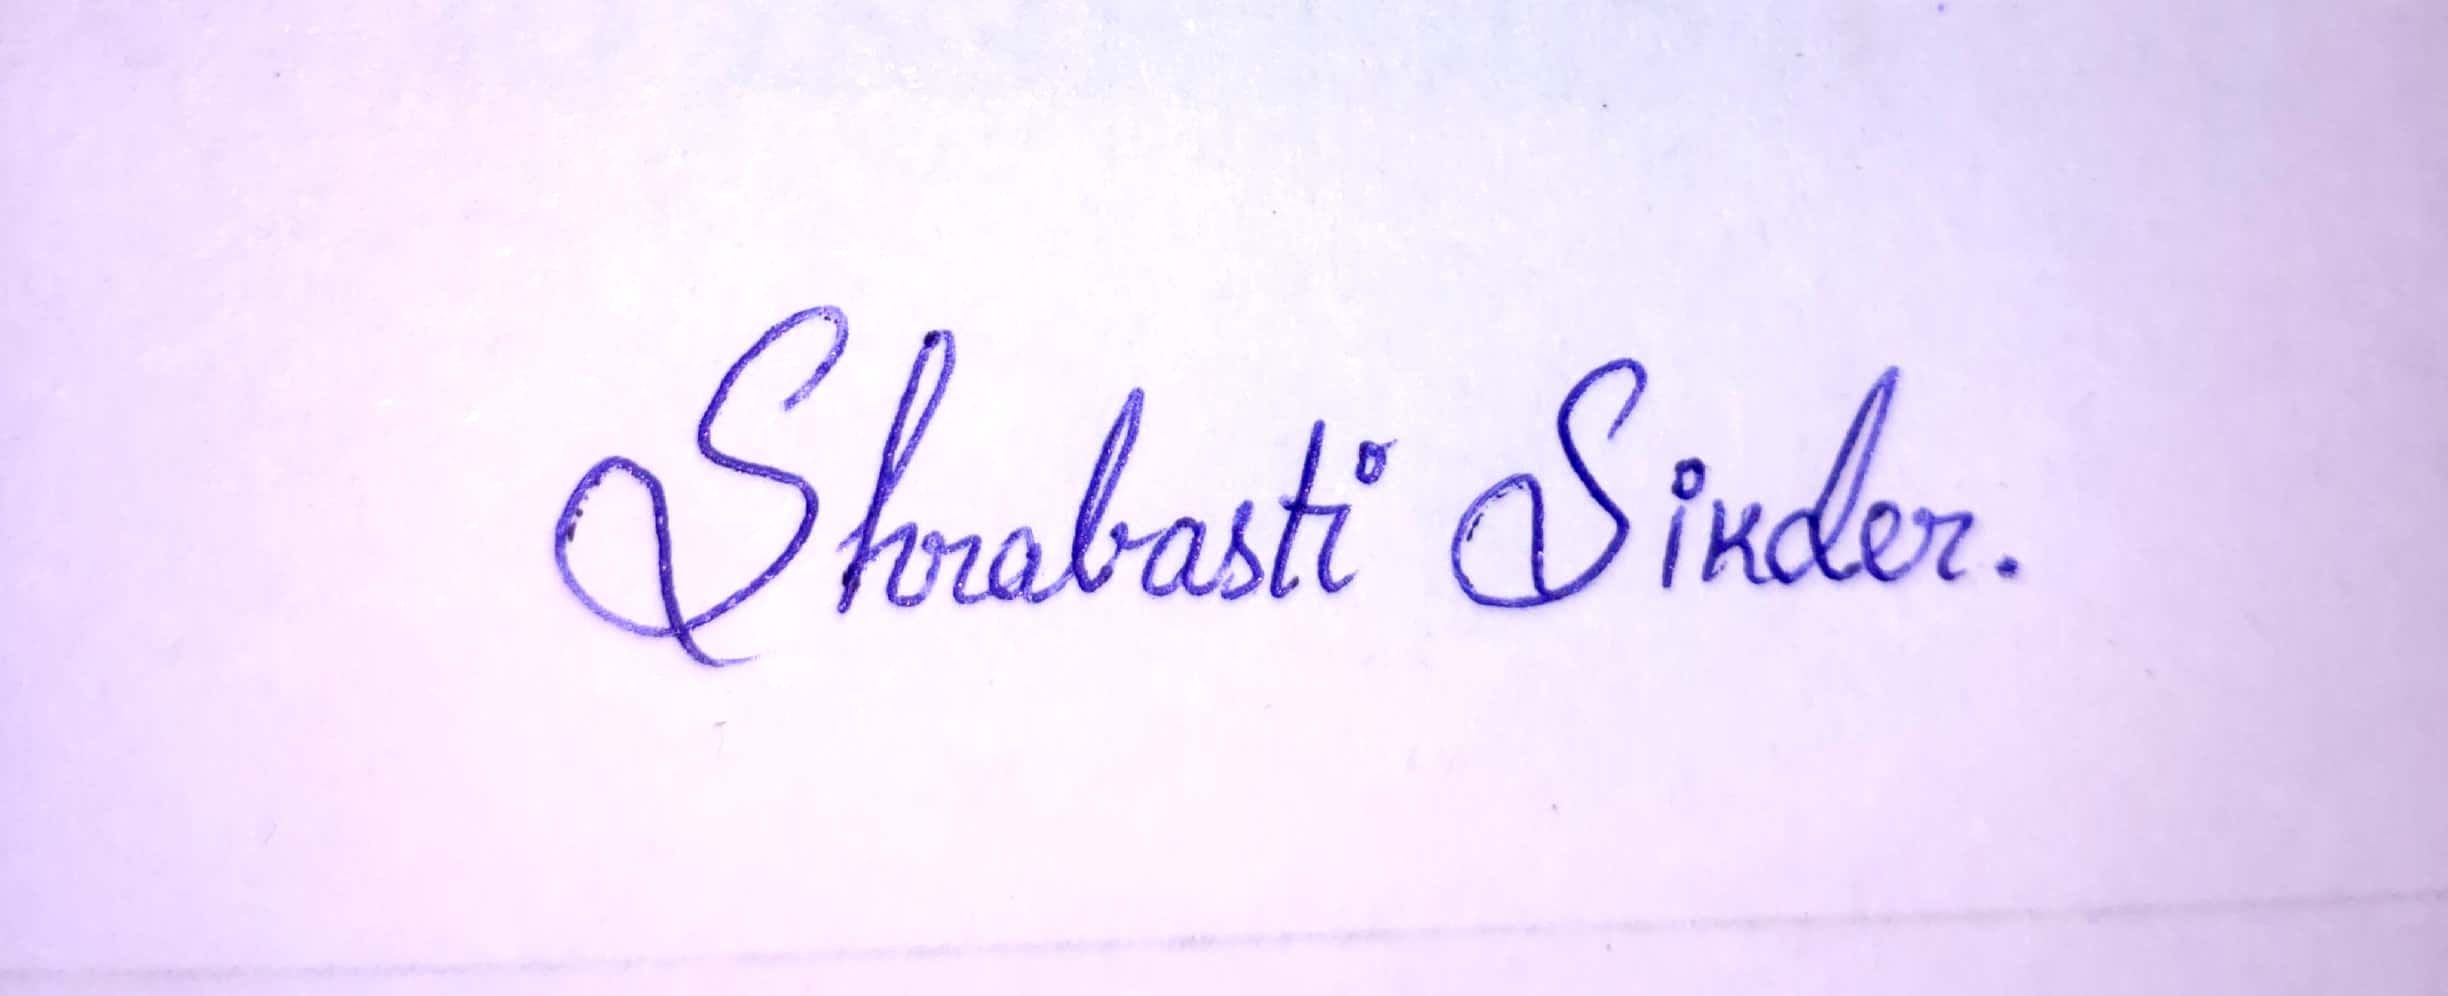 Shrabasti Sikder.